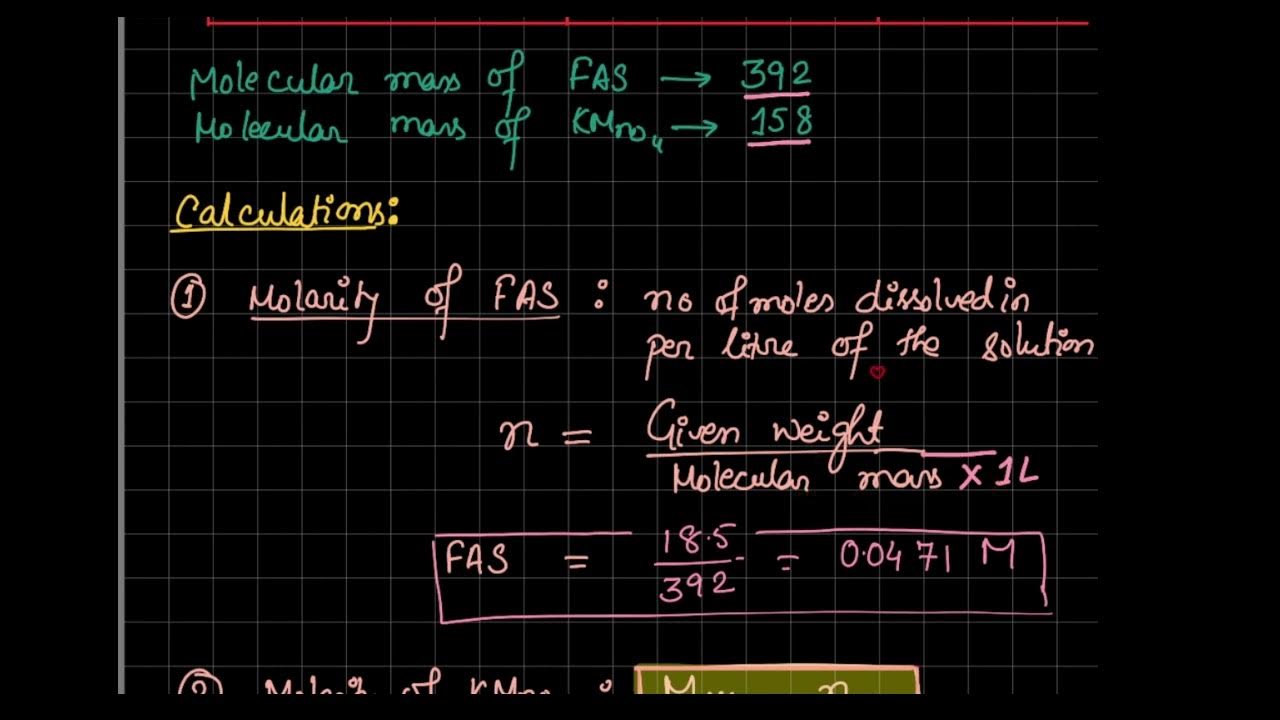 Molecular mass of FAS → 392
Molecular mass of KMno4 → 158
Calculations:
① Molarity of FAS : no of moles dissolved in
per litre of the solution
n = Given weight
Molecular mass x 1L
FAS = 18.5 / 392 = 0.0471 M
② of KMno :
n